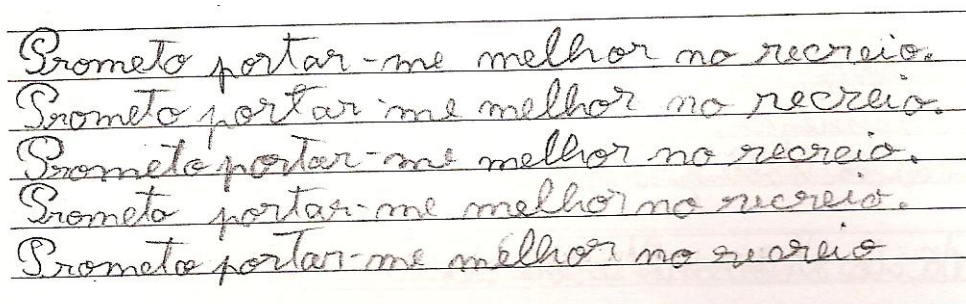 Prometo portar-me melhor no recreio.
Prometo portar-me melhor no recreio.
Prometo portar-me melhor no recreio.
Prometo portar-me melhor no recreio.
Prometo portar-me melhor no recreio